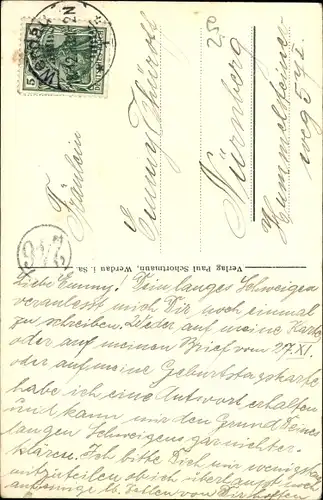 Fräulein
Emmy Thürolf
Nürnberg
Hummelsteiner
weg 54 I.
25
Verlag Paul Schortmann, Werdau i. Sa.
Liebe Emmy! Dein langes Schweigen
veranlasst mich Dir noch einmal
zu schreiben. Weder auf meine Karte
oder auf meinen Brief vom 27. XI.
oder auf meine Geburtstagskarte
habe ich eine Antwort erhalten
und kann mir den Grund Deines
langen Schweigens gar nicht er-
klären. Ich bitte Dich mir wenigstens
mitzuteilen ob ich überhaupt noch
Zeilen von Dir